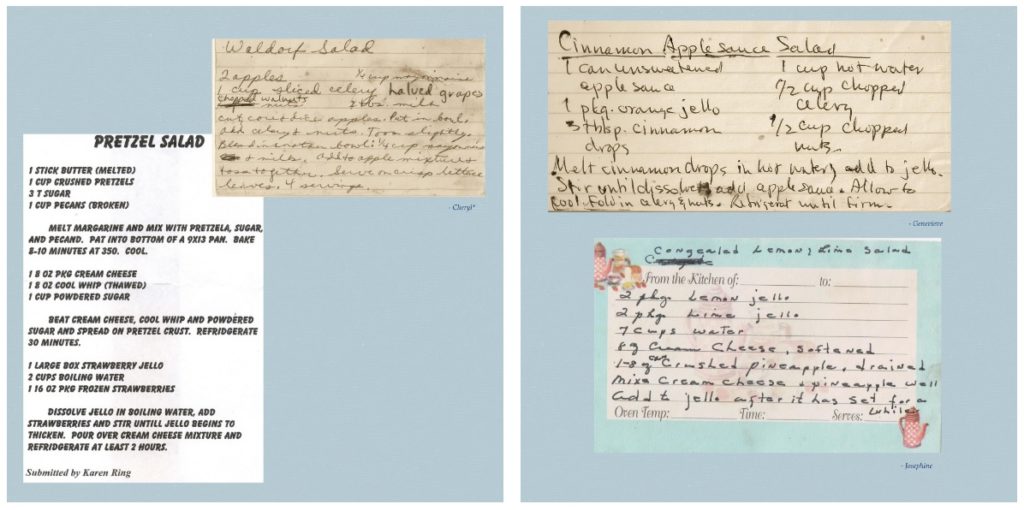 PRETZEL SALAD
1 STICK BUTTER (MELTED)
1 CUP CRUSHED PRETZELS
3 T SUGAR
1 CUP PECANS (BROKEN)
MELT MARGARINE AND MIX WITH PRETZELA, SUGAR,
AND PECAND. PAT INTO BOTTOM OF A 9X13 PAN. BAKE
8-10 MINUTES AT 350. COOL.
1 8 OZ PKG CREAM CHEESE
1 8 OZ COOL WHIP (THAWED)
1 CUP POWDERED SUGAR
BEAT CREAM CHEESE, COOL WHIP AND POWDERED
SUGAR AND SPREAD ON PRETZEL CRUST. REFRIDGERATE
30 MINUTES.
1 LARGE BOX STRAWBERRY JELLO
2 CUPS BOILING WATER
1 16 OZ PKG FROZEN STRAWBERRIES
DISSOLVE JELLO IN BOILING WATER, ADD
STRAWBERRIES AND STIR UNTILL JELLO BEGINS TO
THICKEN. POUR OVER CREAM CHEESE MIXTURE AND
REFRIDGERATE AT LEAST 2 HOURS.
Submitted by Karen Ring
Waldorf Salad
2 apples
1/4 cup mayonnaise
1 cup sliced celery halved grapes
chopped walnuts
nuts 2 tbs. milk
cut, core & dice apples. Put in bowl.
Add celery & nuts. Toss slightly.
Blend in another bowl: 1/4 cup mayonnaise
& milk, add to apple mixture &
toss together. Serve on crisp lettuce
leaves. 4 servings.
- Cheryl*
Cinnamon Applesauce Salad
1 can unsweetened
apple sauce
1 pkg. orange jello
3 tblsp. cinnamon
drops
1 cup hot water
1/2 cup chopped
celery
1/2 cup chopped
nuts.
Melt cinnamon drops in hot water, add to jello.
Stir until dissolved, add applesauce. Allow to
cool. Fold in celery & nuts. Refrigerat until firm.
- Genevieve
Congealed Lemon, Lime Salad
From the Kitchen of: to:
2 pkg. Lemon jello
2 pkg Lime jello
7 cups water
8 oz Cream Cheese, softened
1-8 oz can Crushed pineapple, drained
Mixe Cream cheese & pineapple well
add to jello after it has set for a
while
Oven Temp: Time: Serves:
- Josephine